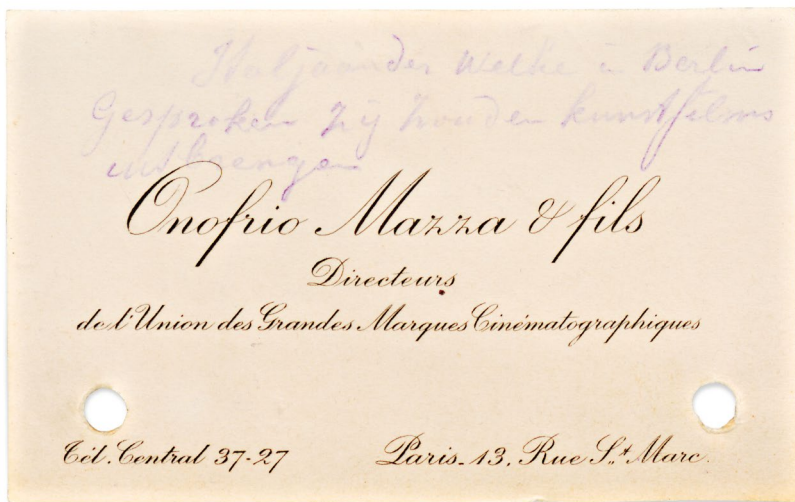 Italjaander Welke in Berlin
Gesproken zij zouden kunstfilms
uitbrengen
Onofrio Mazza & fils
Directeurs
de l'Union des Grandes Marques Cinématographiques
Tél. Central 37-27
Paris. 13, Rue St. Marc.